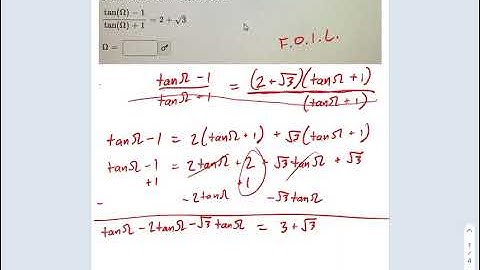 tan(Ω) − 1 / tan(Ω) + 1 = 2 + √3
Ω =
F.O.I.L.
tanΩ -1 / tanΩ +1 = (2+√3)(tanΩ +1) / (tanΩ +1)
tanΩ -1 = 2(tanΩ +1) + √3(tanΩ +1)
tanΩ -1 = 2tanΩ + 2 + √3 tanΩ + √3
+1 +1
-2tanΩ -√3 tanΩ
tanΩ - 2tanΩ - √3 tanΩ = 3 + √3